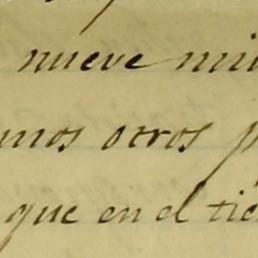 nueve mi
mos otros p
que en el tie